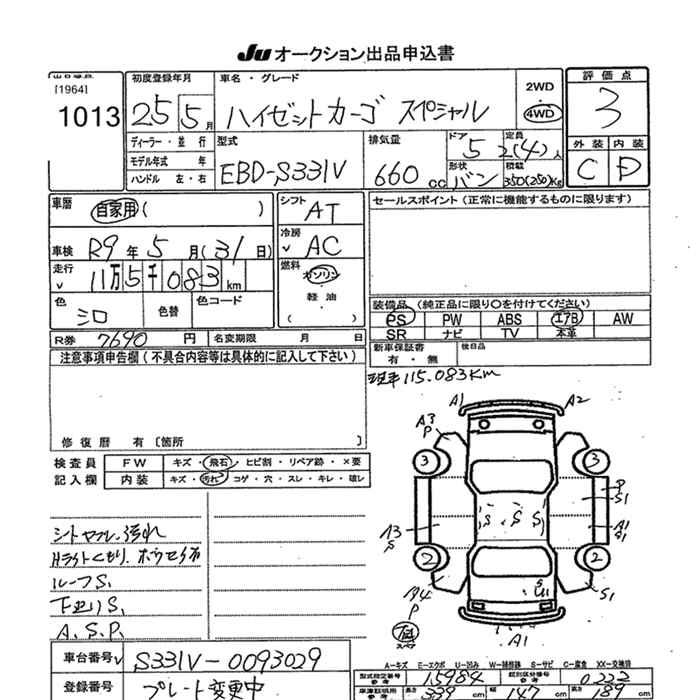 Ju オークション出品申込書
[1964]
1013
初度登録年月
25 5 月
車名・グレード
ハイゼットカーゴ スペシャル
2WD
4WD
評価点
3
ディーラー・並行
モデル年式 年
ハンドル 左・右
型式
EBD-S331V
排気量
660 cc
ドア
5
定員
2(4)人
形状
バン
積載
350(250)Kg
外装 内装
C D
車歴
自家用( )
シフト
AT
セールスポイント(正常に機能するものに限ります)
車検 R9年 5月(31日)
冷房
AC
走行
11万5千083km
燃料
ガソリン
軽油
( )
色
シロ
色替
色コード
装備品(純正品に限り〇を付けてください)
PS PW ABS エアB AW
SR ナビ TV 本革
R券 7690 円 名変期限 月 日
新車保証書
有・無
後日品
注意事項申告欄(不具合内容等は具体的に記入して下さい)
115.083Km
修復歴 有〔箇所 〕
検査員
記入欄
FW キズ・飛石・ヒビ割・リペア跡・×要
内装 キズ・汚れ・コゲ・穴・スレ・キレ・破レ
A1 A2
A3
P
3 3
P
S1
A3
S
S S S
A1
S1
2 2
A4
P
S
S1
A1
スペア
ルーフS.
下廻りS.
A.S.P.
A-キズ E-エクボ U-凹み W-補修跡 S-サビ C-腐食 XX-交換済
車台番号 S331V-0093029
型式指定番号
参考
15984
類別区分番号
参考
0223
登録番号 プレート変更中
車庫証明用
参考
長さ 339 cm
幅 147 cm
高さ 189 cm